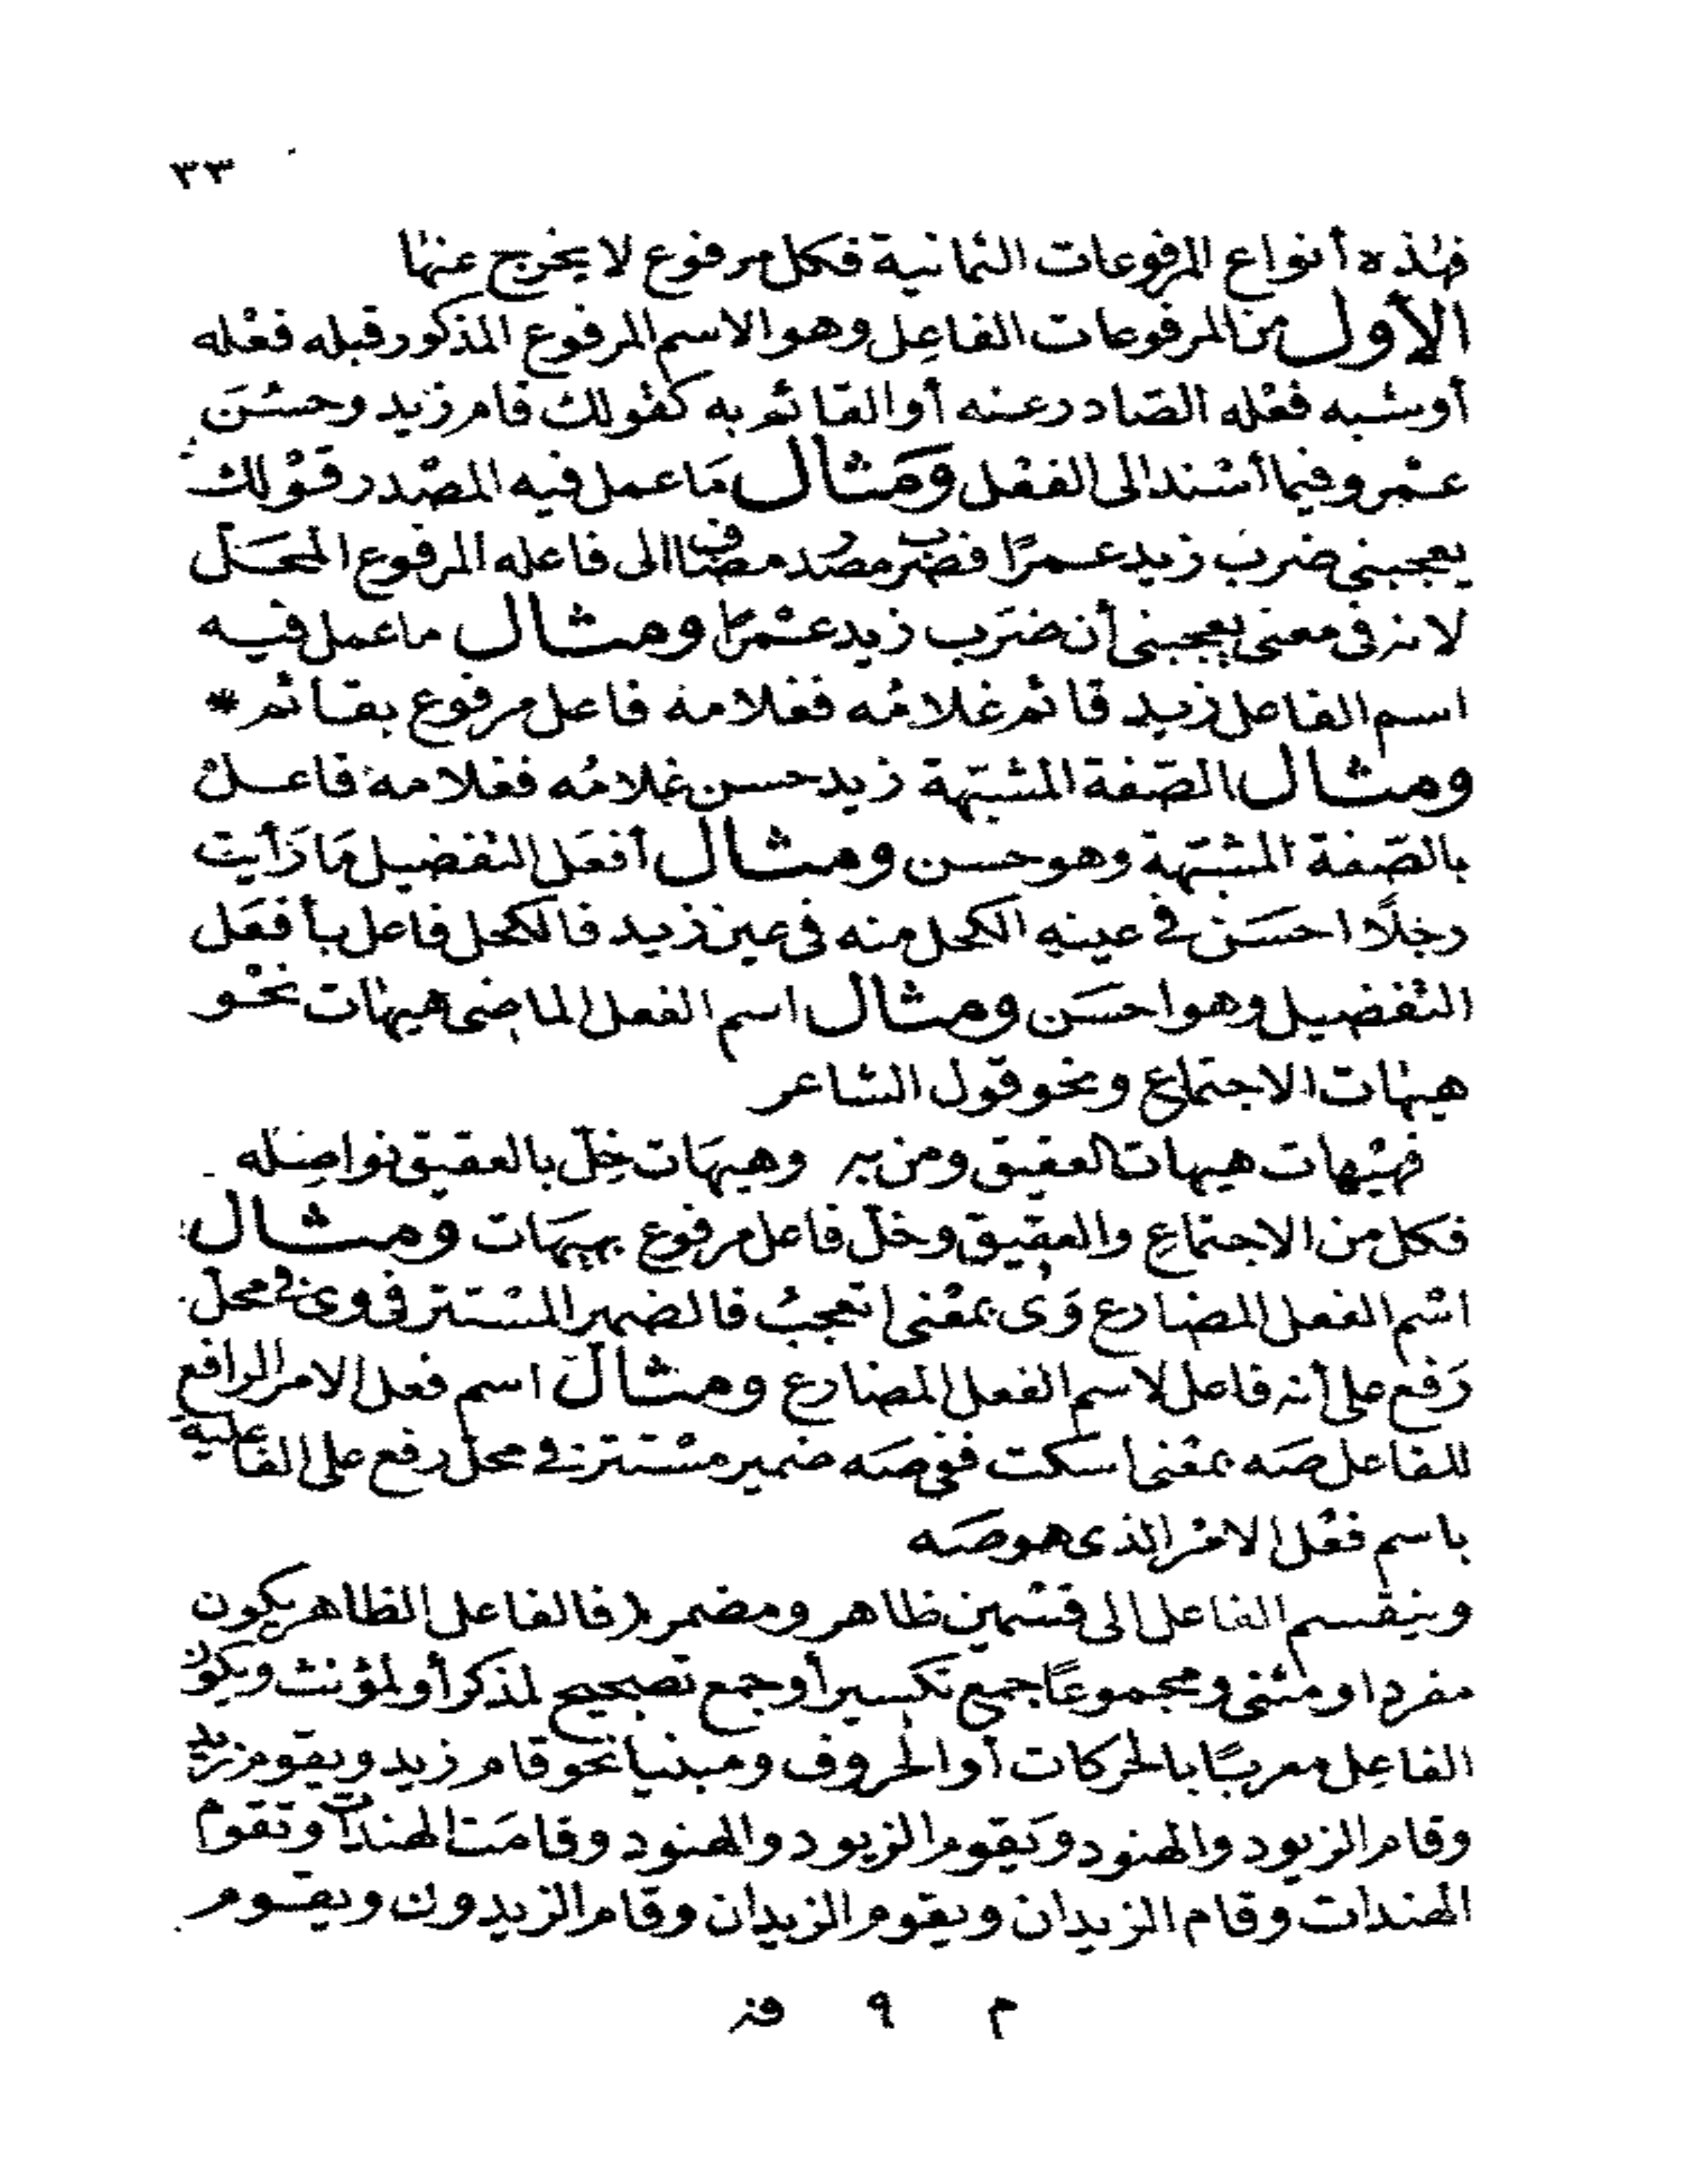 ٣٣
فهذه أنواع المرفوعات الثمانية فكل مرفوع لا يخرج عنها
الأول من المرفوعات الفاعِل وهو الاسم المرفوع المذكور قبله فعْله
أو شبه فعْله الصّادر عنه أو القائم به كقولك قام زيد وحسُنَ
عمْرو فيما أسْند إلى الفعْل وَمَثال مَا عمل فيه المصْدر قوْلك
يعجبني ضربَ زيد عمرًا فضرب مصدر مضاف الى فاعله المرفوع المحَلّ
لانه في معنى يعجبنى أن ضرَب زيد عمْرًا ومثال ما عمل فيه
اسم الفاعل زيد قائم غلامُه فغلامه فاعل مرفوع بقائم *
ومثال الصّفة المشبّهة زيد حسن غلامُه فغلامه فاعل
بالصّفة المشبّهة وهو حسن ومثال أفعَل التفضيل مَا رَأيت
رجلًا احسَن في عينهِ الكحل منه فى عين زيد فالكحل فاعل بأفعَل
التفضيل وهو احسَن ومثال اسم الفعل الماضى هيهات نحْو
هيهات الاجتماع ونحو قول الشاعر
فهيْهات هيهات العقيق ومن به وهيهَات خِلّ بالعقيق نواصِله
فكل من الاجتماع والعقيق وخلّ فاعل مرفوع بهيهَات ومثال
اسْم الفعل المضارع وَى بمعْنى اتعجبُ فالضمير المسْتتر فى وى في محلّ
رَفع على أنه فاعل لاسم الفعل المضارع ومثال اسم فعل الامر الرافع
للفاعل صَه بمعْنى اسكت ففى صَه ضمير مسْتتر في محلّ رفع على الفاعلية
باسم فعْل الامْر الذى هو صَه
وينقسم الفاعل الى قسْمين ظاهر ومضمر فالفاعل الظاهر يكون
مفردا ومثنى ومجموعًا جمع تكسير أو جمع تصحيح لمذكر أو لمؤنث ويكون
الفاعِل معربًا بالحركات أو الحروف ومبنيا نحو قام زيد ويقوم زيد
وقام الزيود والهنود وَيقوم الزيود والهنود وقامَت الهندات وتقوم
الهندات وقام الزيدان ويقوم الزيدان وقام الزيدون ويقوم
م ٩ فز